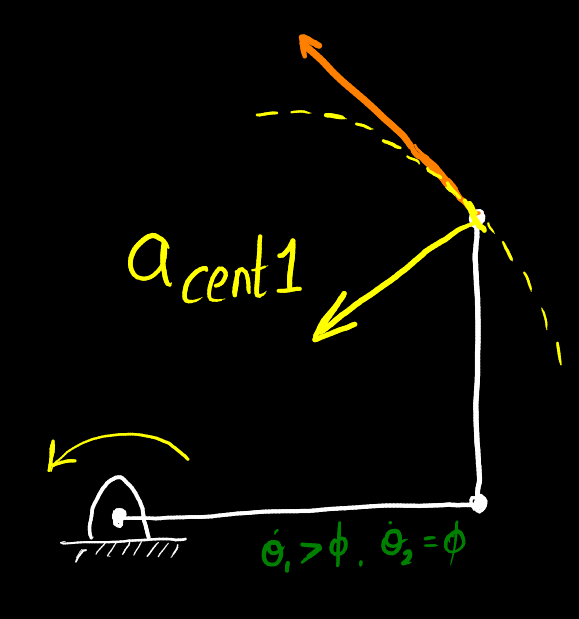 a cent1
θ̇₁ > ϕ. θ̇₂ = ϕ